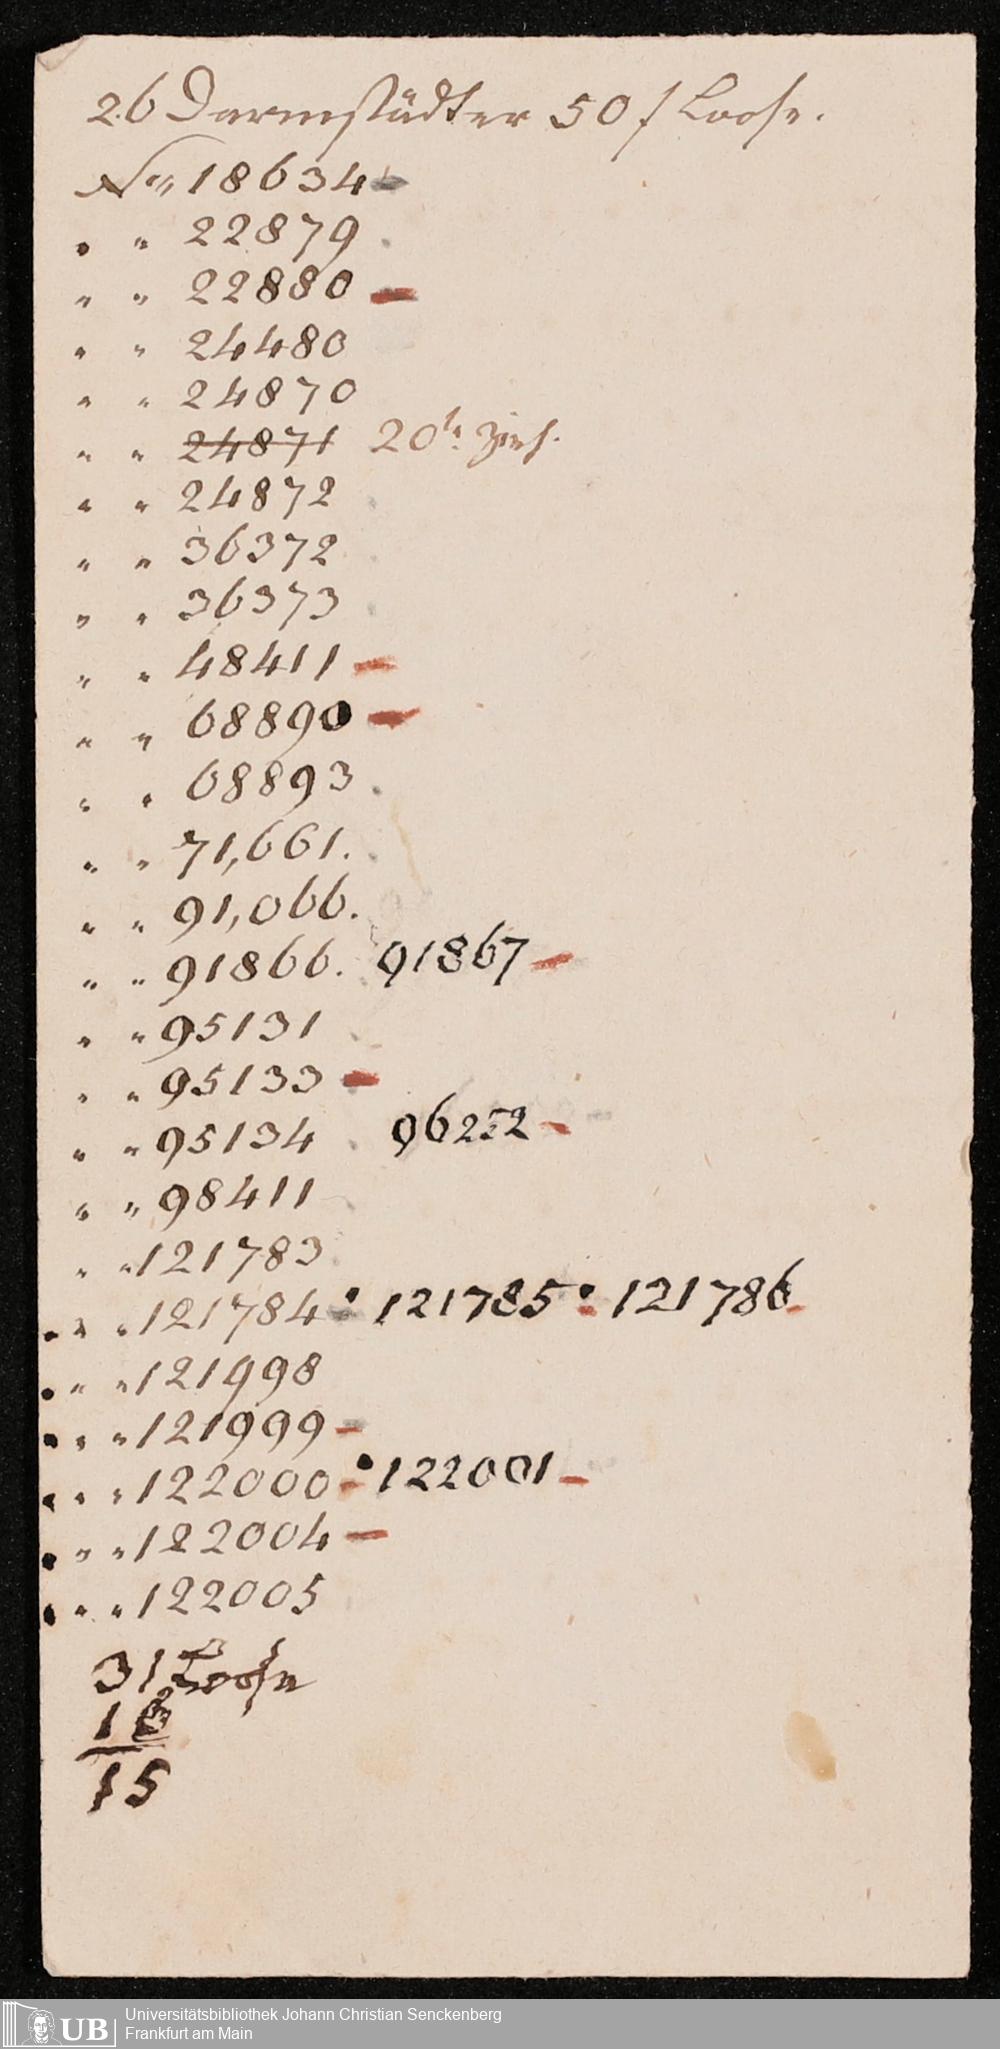 26 Darmstädter 50 f Loose.
No. 18634
" " 22879
" " 22880
" " 24480
" " 24870
" " 24871 20te Zieh.
" " 24872
" " 36372
" " 36373
" " 48411
" " 68890
" " 68893
" " 71,661.
" " 91,066.
" " 91866. 91867
" " 95131
" " 95133
" " 95134 96252
" " 98411
" " 121783
" " 121784 121785 121786
" " 121998
" " 121999
" " 122000 122001
" " 122004
" " 122005
31 Loose
16
15
Universitätsbibliothek Johann Christian Senckenberg
Frankfurt am Main
UB